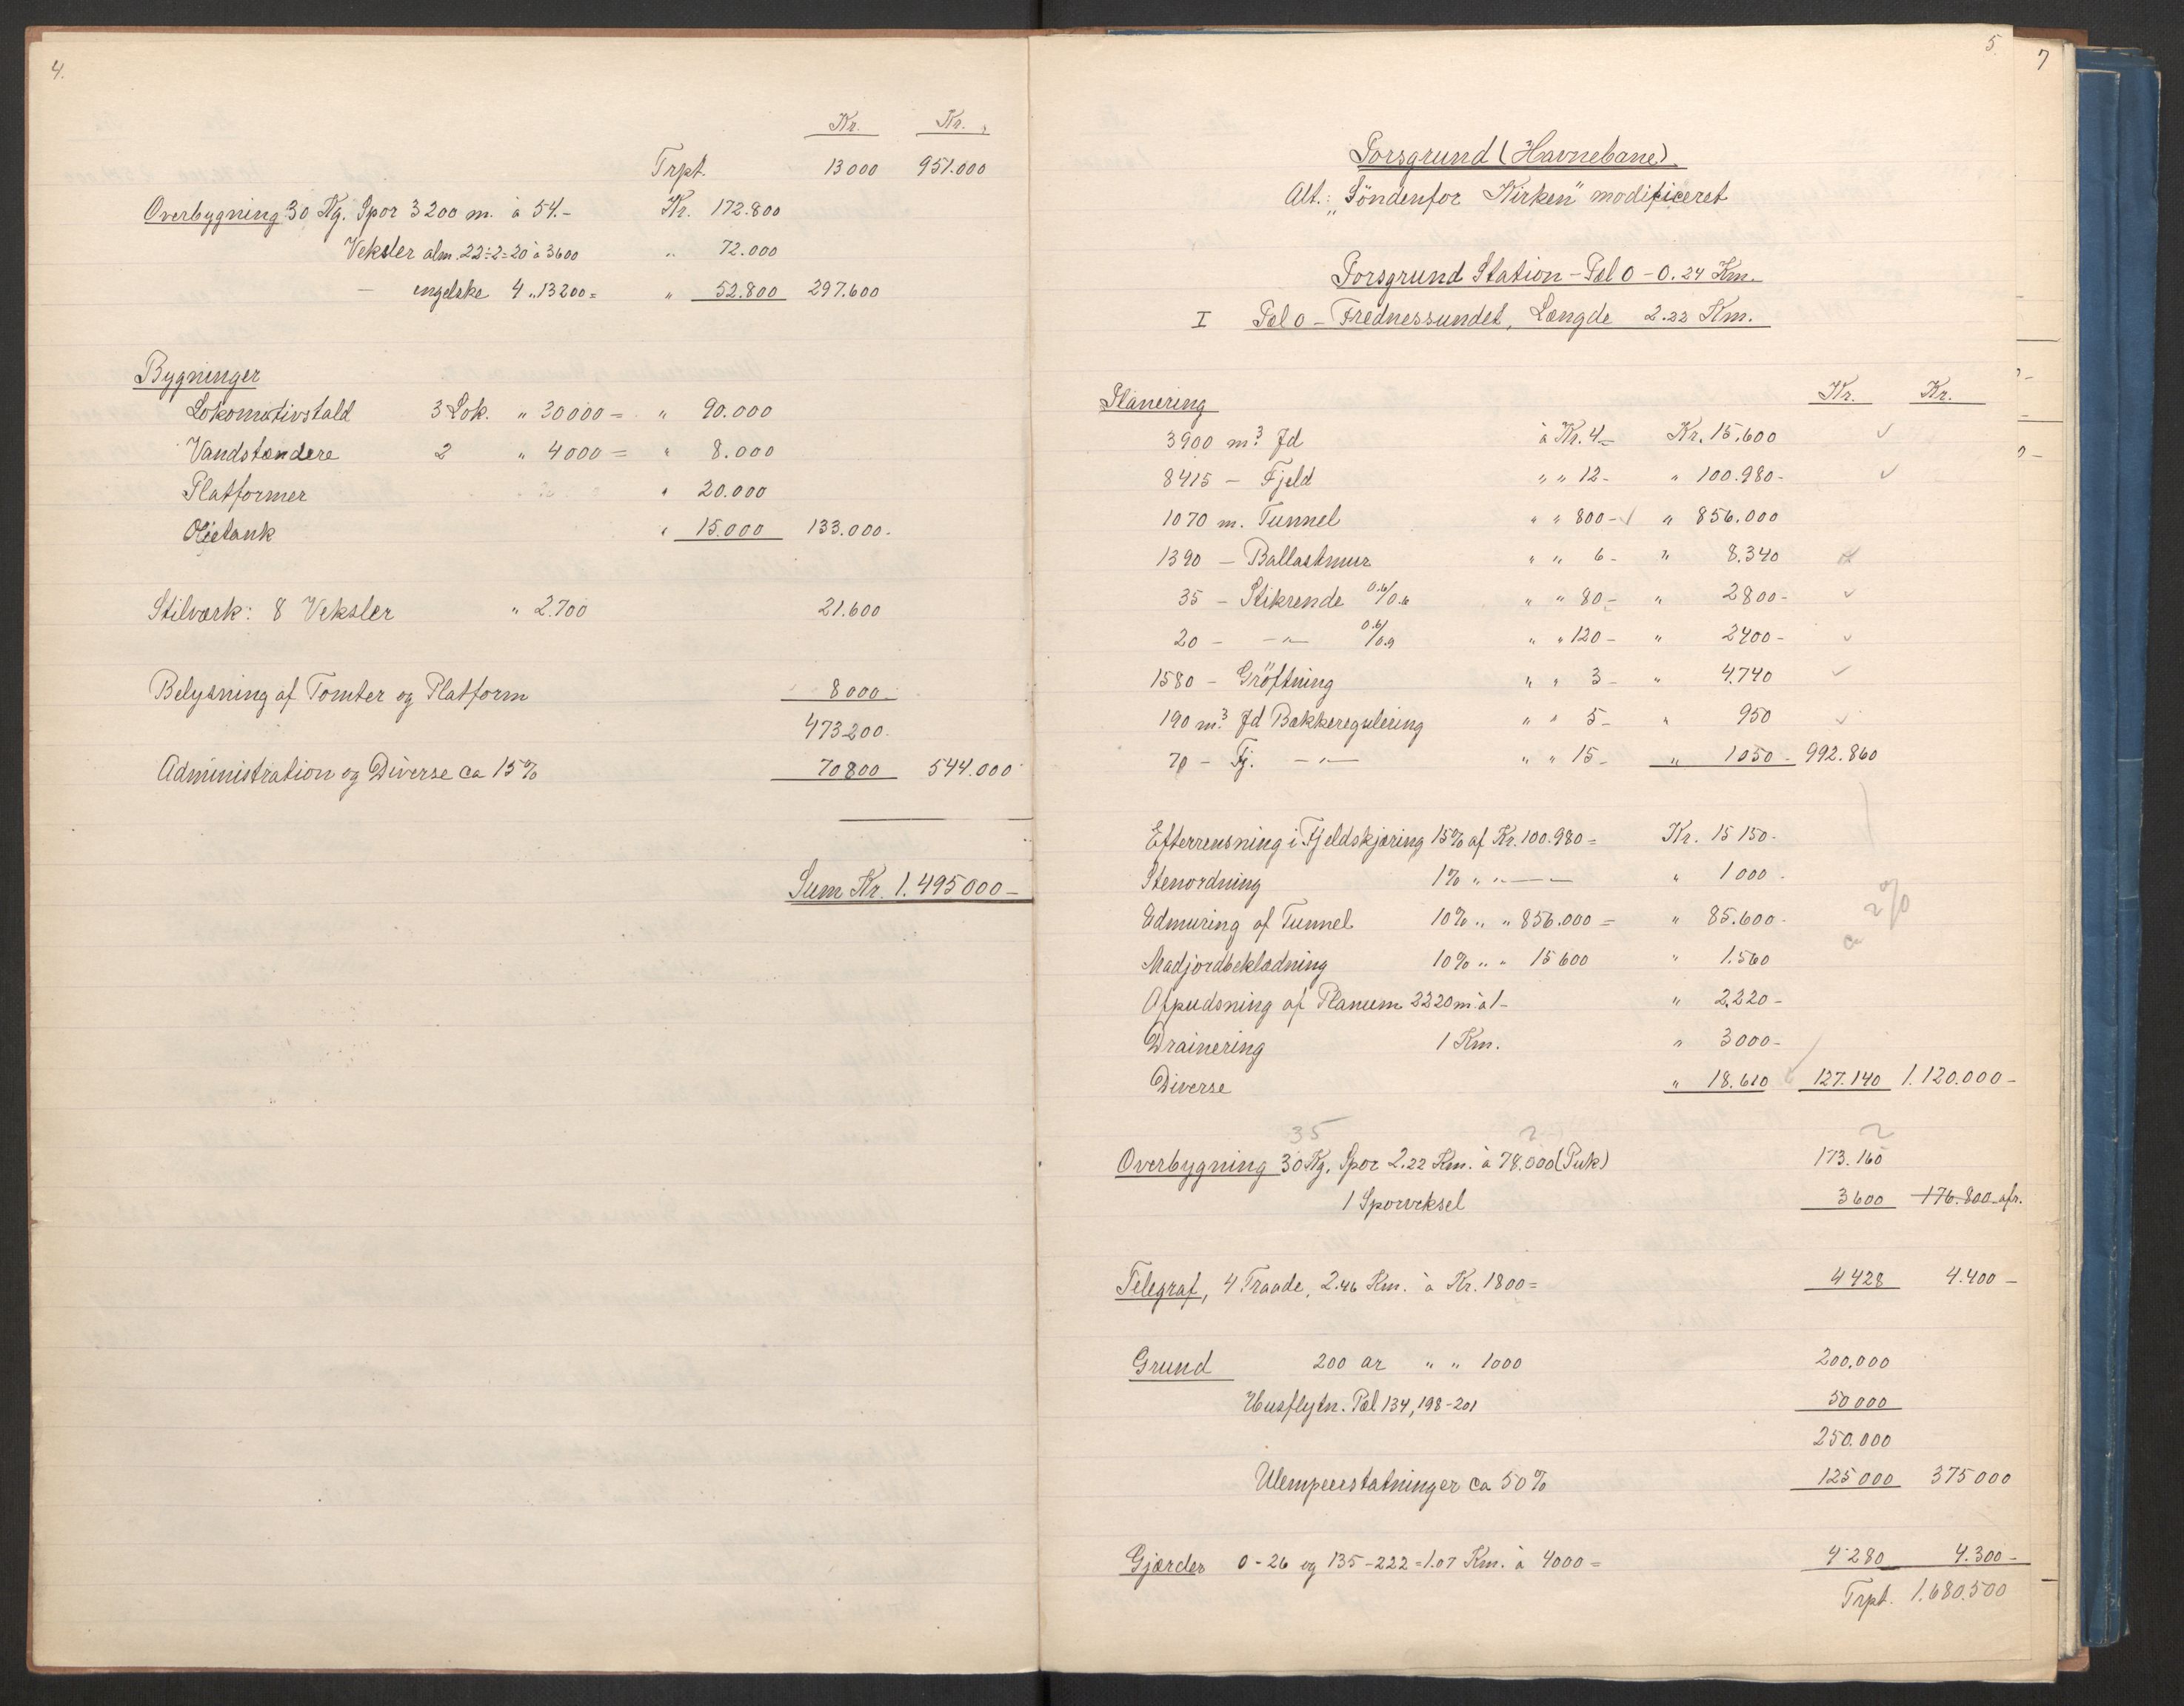 4.
Kr. Kr.
Trpt. 13000 951.000
Overbygning 30 Kg. Spor 3200 m. à 54.- Kr. 172.800
Veksler alm. 22÷2=20 à 3600 " 72.000
— engelske 4 " 13200= " 52.800 297.600
Bygninger
Lokomotivstald 3 Lok. " 30000= " 90.000
Vandstændere 2 " 4000= " 8.000
Platformer " 20.000
Oljetank " 15.000 133.000.
Stilværk: 8 Veksler " 2.700 21.600
Belysning af Tomter og Platform 8000
473200.
Administration og Diverse ca 15% 70800 544.000
Sum Kr. 1.495000-
5. 7
Porsgrund (Havnebane).
Alt.: "Söndenfor Kirken" modificeret
Porsgrund Station - Pæl 0 - 0.24 Km.
I Pæl 0 - Frednessundet, Længde 2.22 Km.
Planering Kr. Kr.
3900 m.3 Jd à Kr. 4- Kr. 15.600 ✓
8415 — Fjeld " " 12- " 100.980- ✓
1070 m. Tunnel " " 800- ✓ " 856.000
1390 — Ballastmur " " 6- " 8.340 ✓
35 — Stikrende 0.6/0.6 " " 80- " 2800- ✓
20 — —"— 0.6/0.9 " " 120- " 2400- ✓
1580 — Gröftning " " 3- " 4.740 ✓
190 m.3 Jd Bækkeregulering " " 5- " 950 ✓
70 — Fj. —"— " " 15- " 1050- 992.860
Efterrensning i Fjeldskjæring 15% af Kr. 100.980= Kr. 15150-
Stenordning 1% " "—— " 1000-
Udmuring af Tunnel 10% " " 856.000= " 85.600-
ca 2%
Madjordbeklædning 10% " " 15600 " 1.560
Afpudsning af Planum 2220 m. à 1- " 2.220-
Drainering 1 Km. " 3000-
Diverse " 18.610 127.140 1.120.000-
35 2 2
Overbygning 30 Kg. Spor 2.22 Km. à 78.000 (Puk) 173.160
1 Sporveksel 3600 176.800 afr.
Telegraf, 4 Traade, 2.46 Km. à Kr. 1800= 4428 4.400-
Grund 200 ar " " 1000 200.000
Husflytn. Pæl 134, 198-201 50000
250.000
Ulempeerstatninger ca 50% 125000 375000
Gjærder 0-26 og 135-222=1.07 Km. à 4000= 4280 4.300-
Trpt. 1.680.500